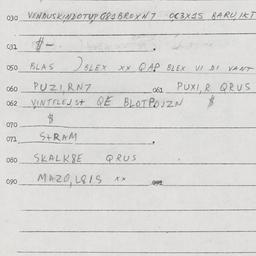 030 VINDUSKINDOTYP 081BROXN7 OC3X1S BARU,IKT
031 $-
050 BLAS )BLEX XX QAP BLEX VI DI VANT
060 PUZI,RN7 061 PUXI,R QRUS
062 VINTFLEJST QE BLOTPOJZN $
070 $
071 S+RAM
080 SKALK8E QRUS
090 MAZO,L81S XX 091